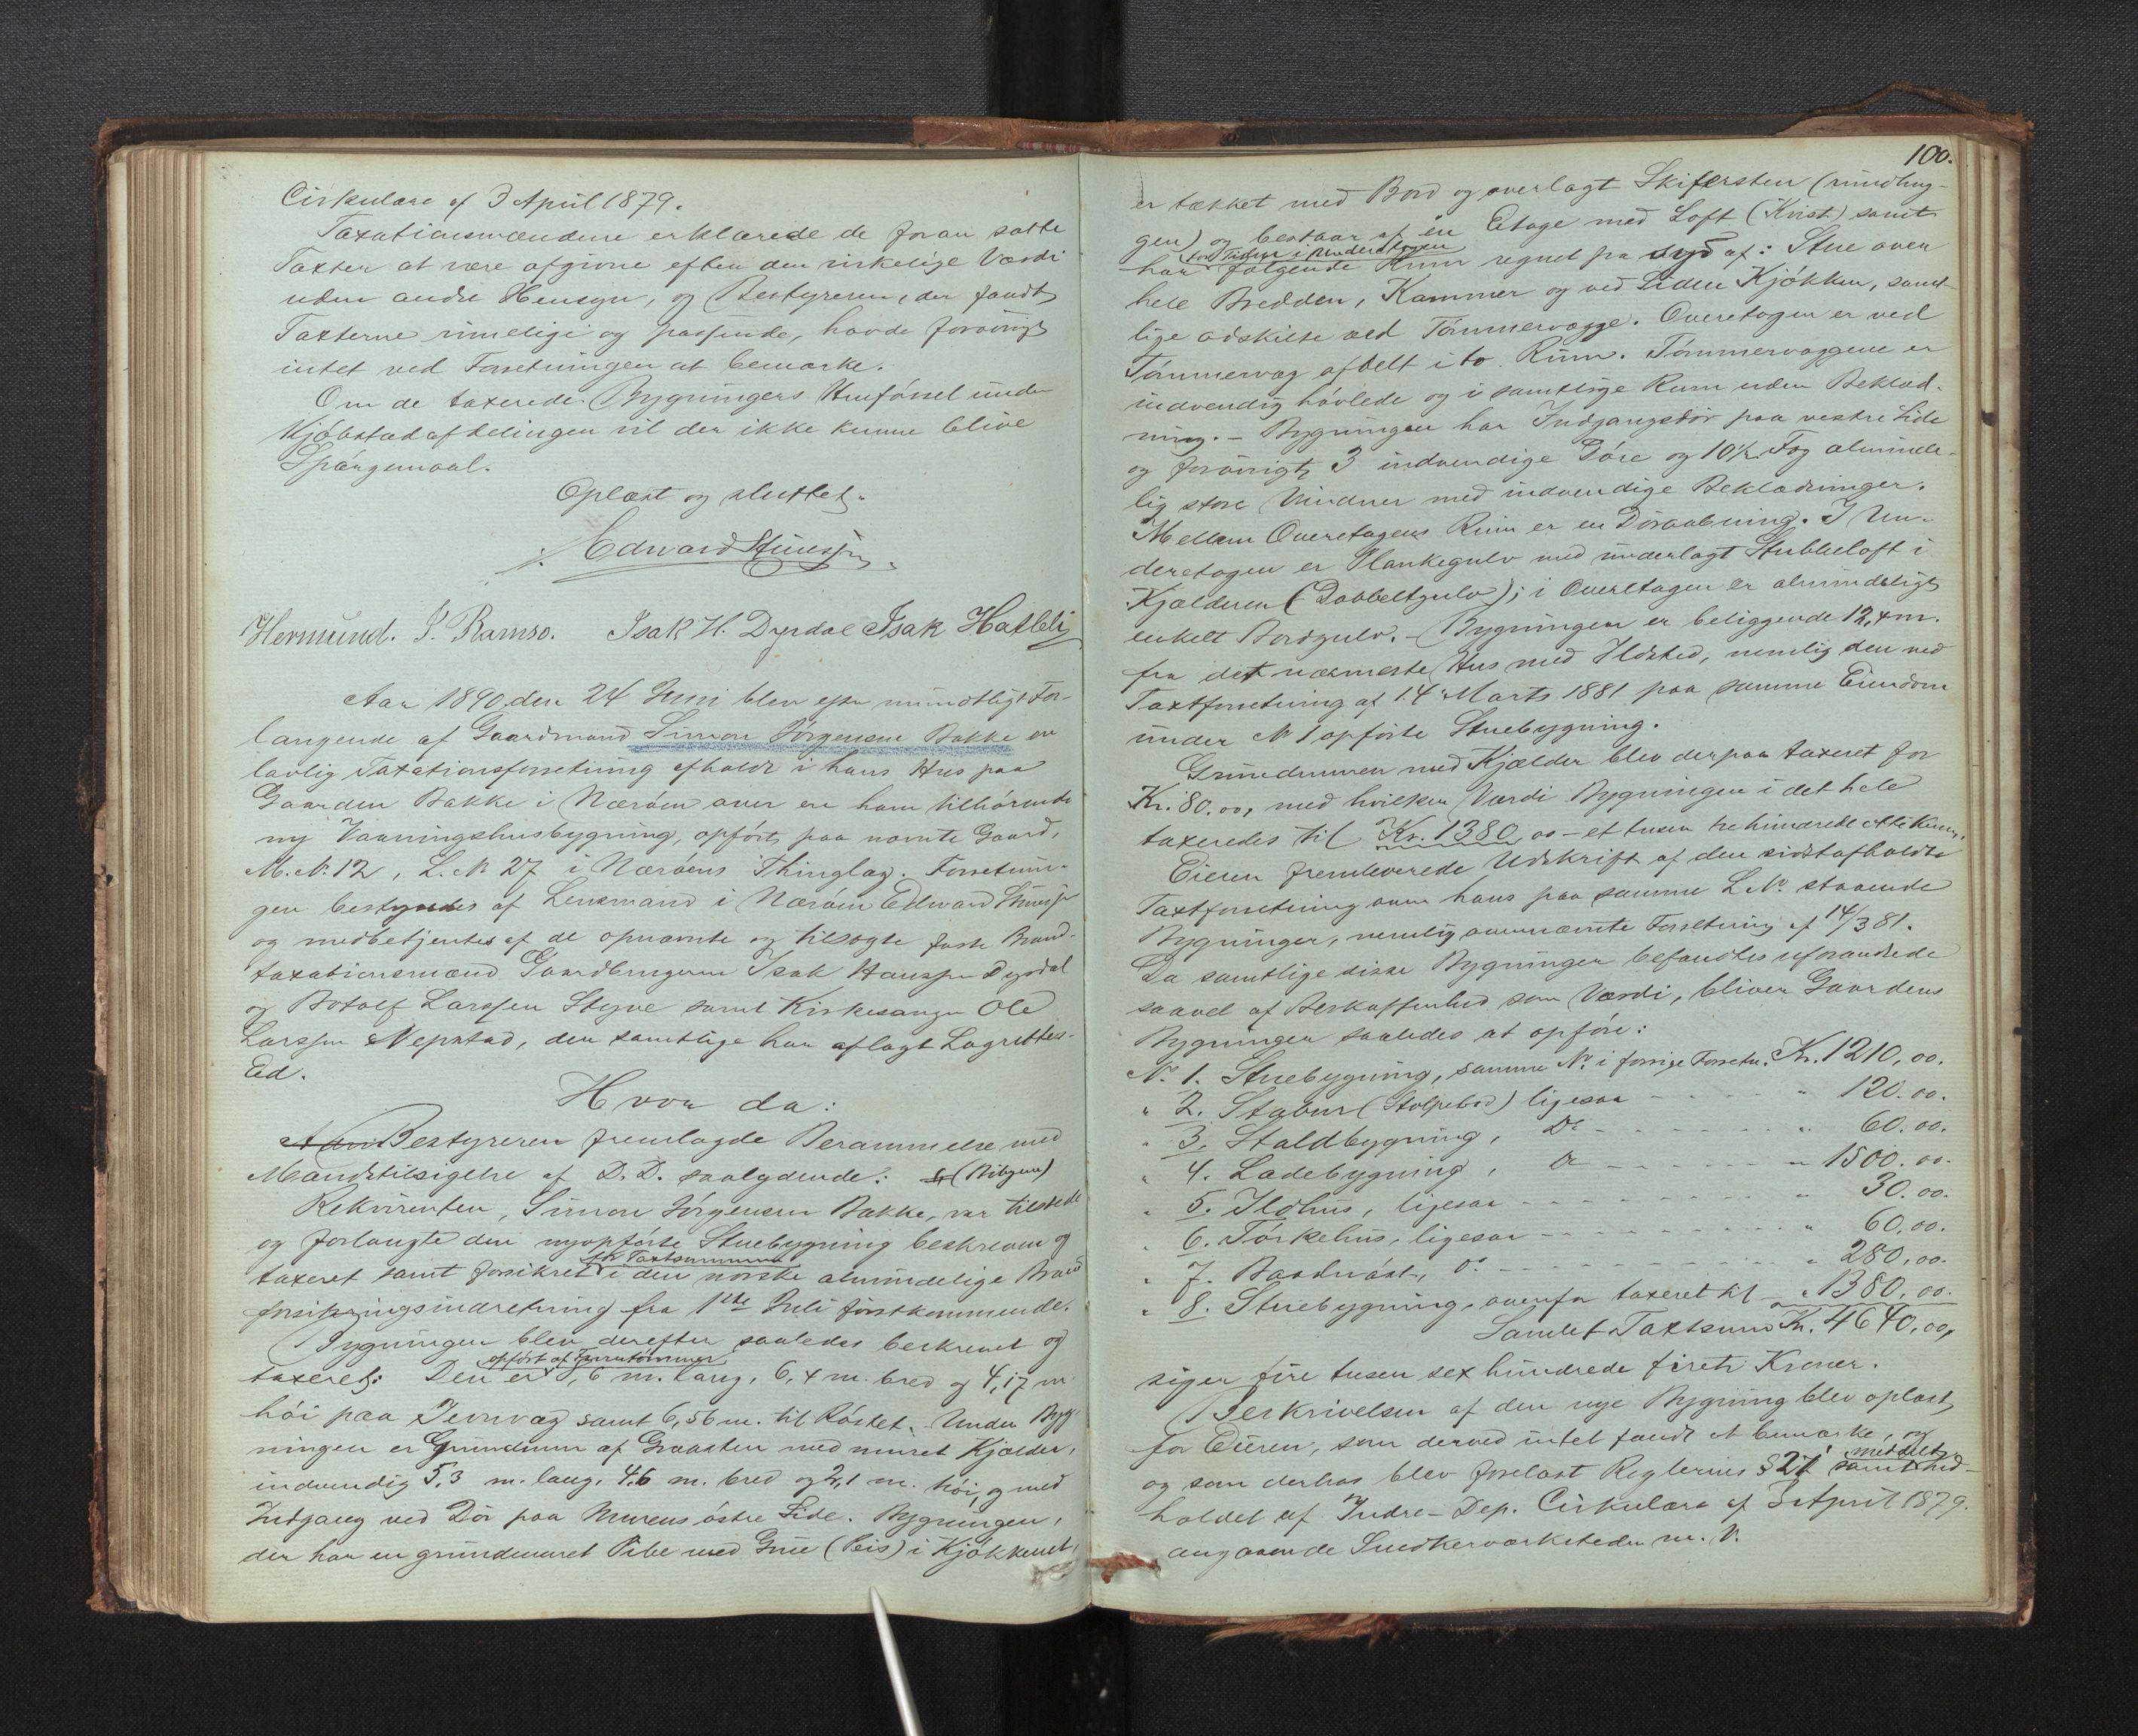 Cirkulære af 3 April 1879.
Taxationsmændene erklærede de foran satte
Taxter at være afgivne efter den virkelige Værdi
uden andre Hensyn, og Bestyreren, der fandt
Taxterne rimelige og passende, havde forøvrigt
intet ved Forretningen at bemærke.
Om de taxerede Bygningers Henførsel under
Kjøbstadafdelingen vil der ikke kunne blive
Spørgsmaal.
Oplæst og sluttet.
Edward
Hermund. J. Ramsø. Isak H. Dyrdal Isak Hatleli
Aar 1890 den 24 Juni blev efter mundtligt For-
langende af Gaardmand Simon Jørgensen Bakke en
lovlig Taxationsforretning afholdt i hans Hus paa
Gaarden Bakke i Nærøen over en ham tilhørende
ny Vaaningshusbygning, opført paa nævnte Gaard,
M. No. 12, L. No 27 i Nærøens Thinglag. Forretnin-
gen bestyredes af Lensmand i Nærøen Edward
og medbetjentes af de opnævnte og tilsagte faste Brand-
taxationsmænd Gaardbrugerne Isak Hanssen Dyrdal
og Botolf Larssen Stegve samt Kirkesanger Ole
Larssen Nepstad, der samtlige har aflagt Lagrettes-
Ed.
Hvor da:
Bestyreren fremlagde Berammelse med
Mandstilsigelse af D. D. saalydende: (Bilgen)
Rekvirenten, Simon Jørgensen Bakke, var tilstede
og forlangte den nyopførte Stuebygning beskreven og
for Taxtsummen
taxeret samt forsikret i den norske almindelige Brand-
forsikringsindretning fra 1ste Juli førstkommende.
Bygningen blev derefter saaledes beskrevet og
opført af Furutømmer
taxeret: Den er , 6 m. lang, 6,4 m. bred og 4,17 m
høi paa Jevnvæg samt 6,56 m. til Røstet. Under Byg-
ningen er Grundmur af Graasten med muret Kjælder,
indvendig 5,3 m. lang, 4,6 m. bred og 2,1 m. høi, og med
Indgang ved Dør paa Murens østre Side. Bygningen,
der har en grundmuret Pibe med Grue (Peis) i Kjøkkenet,
100.
er tækket med Bord og overlagt Skifersten (rundhug-
gen) og bestaar af én Etage med Loft (Kvist) samt
for Tiden i Underetagen
har følgende Rum regnet fra syd af: Stue over
hele Bredden, Kammer og ved Siden Kjøkken, samt-
lige adskilte ved Tømmervægge. Overetagen er ved
Tømmervæg afdelt i to Rum. Tømmervæggene er
indvendig høvlede og i samtlige Rum uden Beklæd-
ning. – Bygningen har Indgangsdør paa vestre Side
og forøvrigt 3 indvendige Døre og 10½ Fag alminde-
lig store Vinduer med indvendige Beklædninger.
Mellem Overetagens Rum er en Døraabning. I Un-
deretagen er Plankegulv med underlagt Stubbeloft i
Kjælderen (Dobbeltgulv); i Overetagen er almindeligt
enkelt Bordgulv. – Bygningen er beliggende 12,4 m.
fra det nærmeste Hus med Ildsted, nemlig den ved
Taxtforretning af 14 Marts 1881 paa samme Eiendom
under No 1 opførte Stuebygning.
Grundmuren med Kjælder blev derpaa taxeret for
Kr. 80.00, med hvilken Værdi Bygningen i det hele
taxeredes til Kr. 1380,00 – et tusen tre hundrede otti Kroner.
Eieren fremleverede Udskrift af den sidstafholdte
Taxtforretning over hans paa samme L No. staaende
Bygninger, nemlig ovennævnte Forretning af 14/3 81.
Da samtlige disse Bygninger befandtes uforandrede
saavel af Beskaffenhed som Værdi, bliver Gaardens
Bygninger saaledes at opføre:
No. 1. Stuebygning, samme No. i forrige Forretn. Kr. 1210,00.
" 2. Stabur (Stolpebod) ligesaa - - - - " 120.00.
" 3. Staldbygning, Do - - - - " 60.00.
" 4. Ladebygning, Do - - - - " 1500.00.
" 5. Ildhus, ligesaa - - - - " 30.00.
" 6. Tørkehus, ligesaa - - - - " 60,00.
" 7. Baadnøst, Do - - - - " 280,00.
" 8. Stuebygning, ovenfor taxeret til - " 1380,00.
Samlet Taxtsum Kr. 4640,00,
siger fire tusen sex hundrede fireti Kroner.
Beskrivelsen af den nye Bygning blev oplæst
for Eieren, som derved intet fandt at bemærke, og
meddelt
og som derhos blev forelæst Reglernes § 21 samt Ind-
holdet af Indre-Dep. Cirkulære af 3 April 1879.
angaaende Snedkerværksteder m. V.